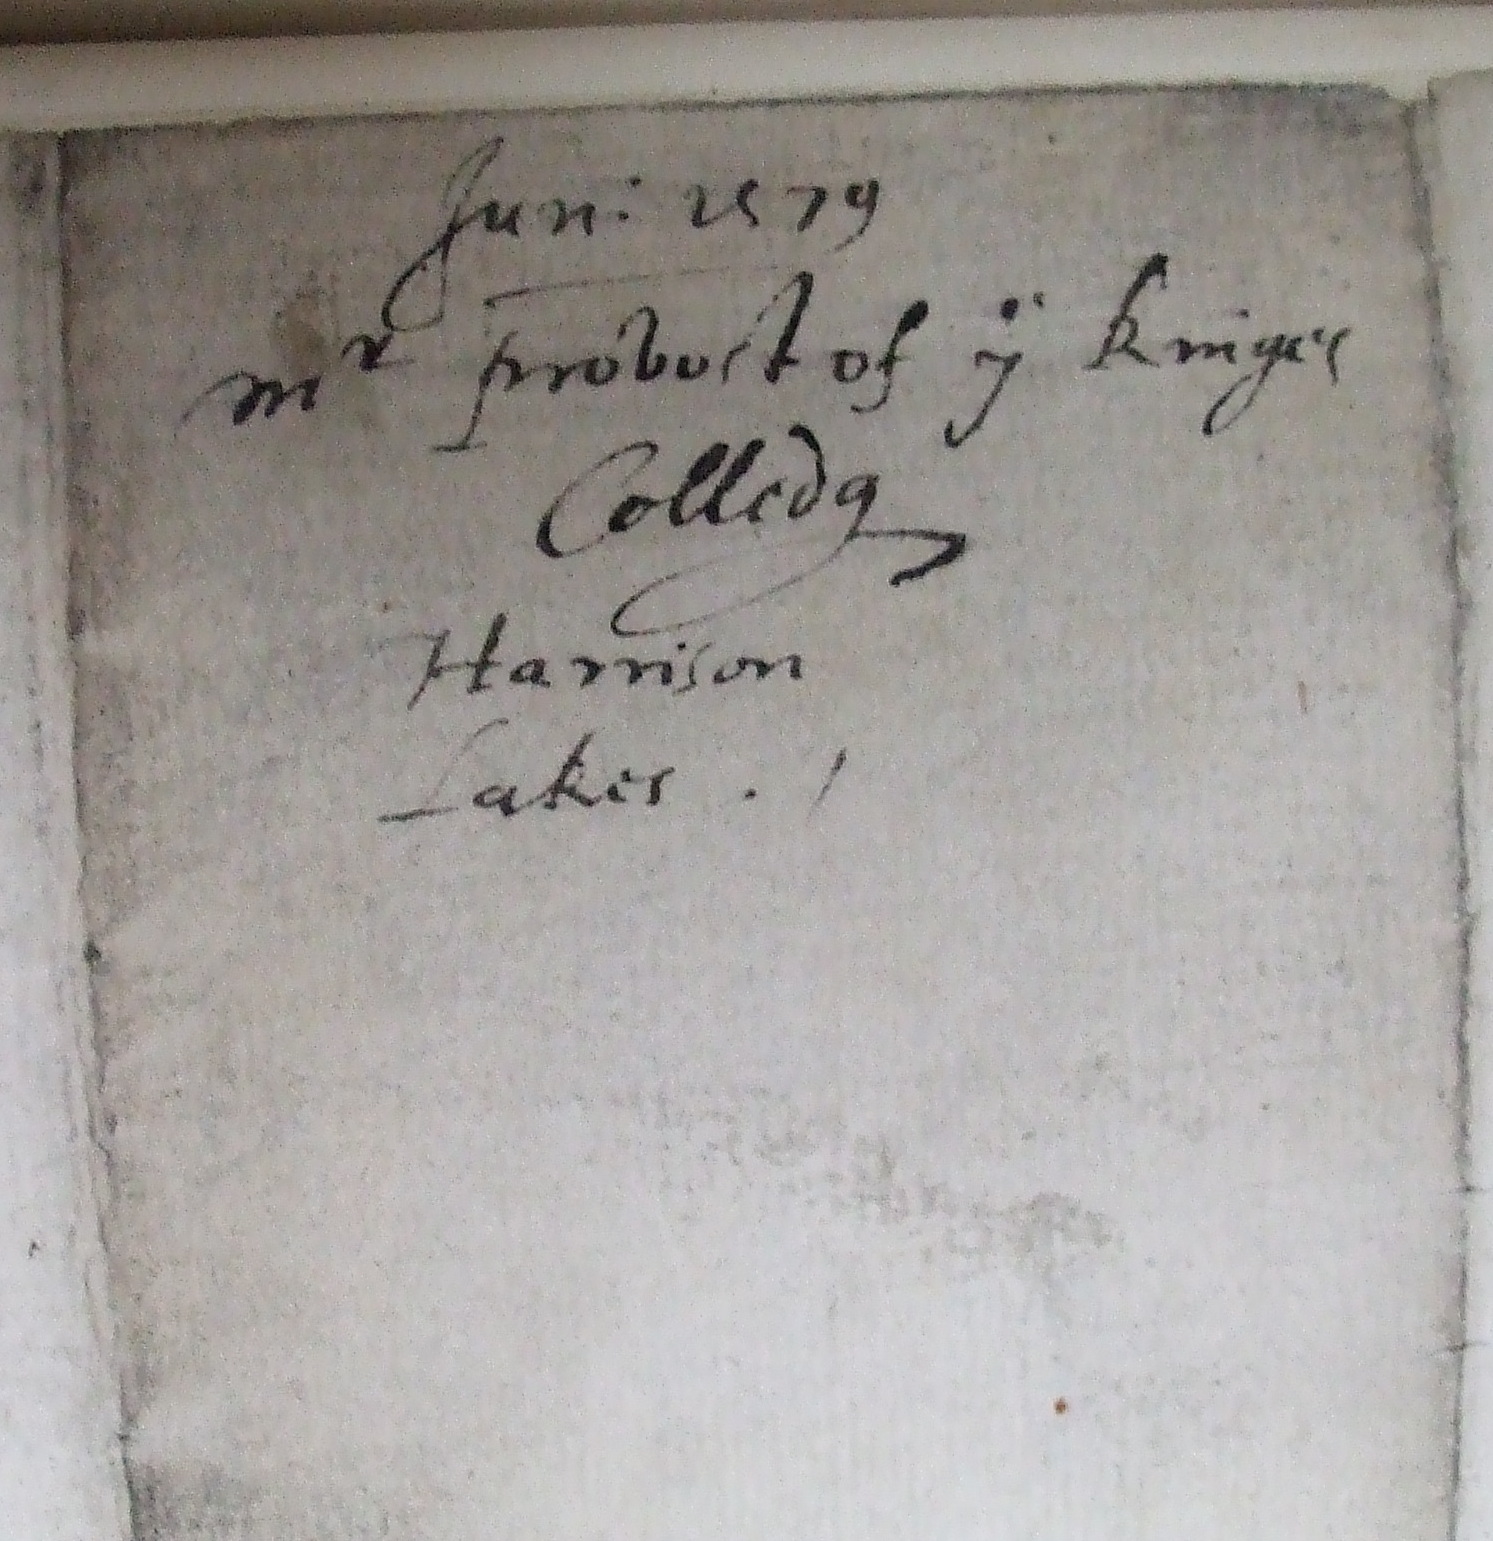 Juni: 1579
mr provost of ẏ Kinges
Colledg
Harrison
Lakes . /